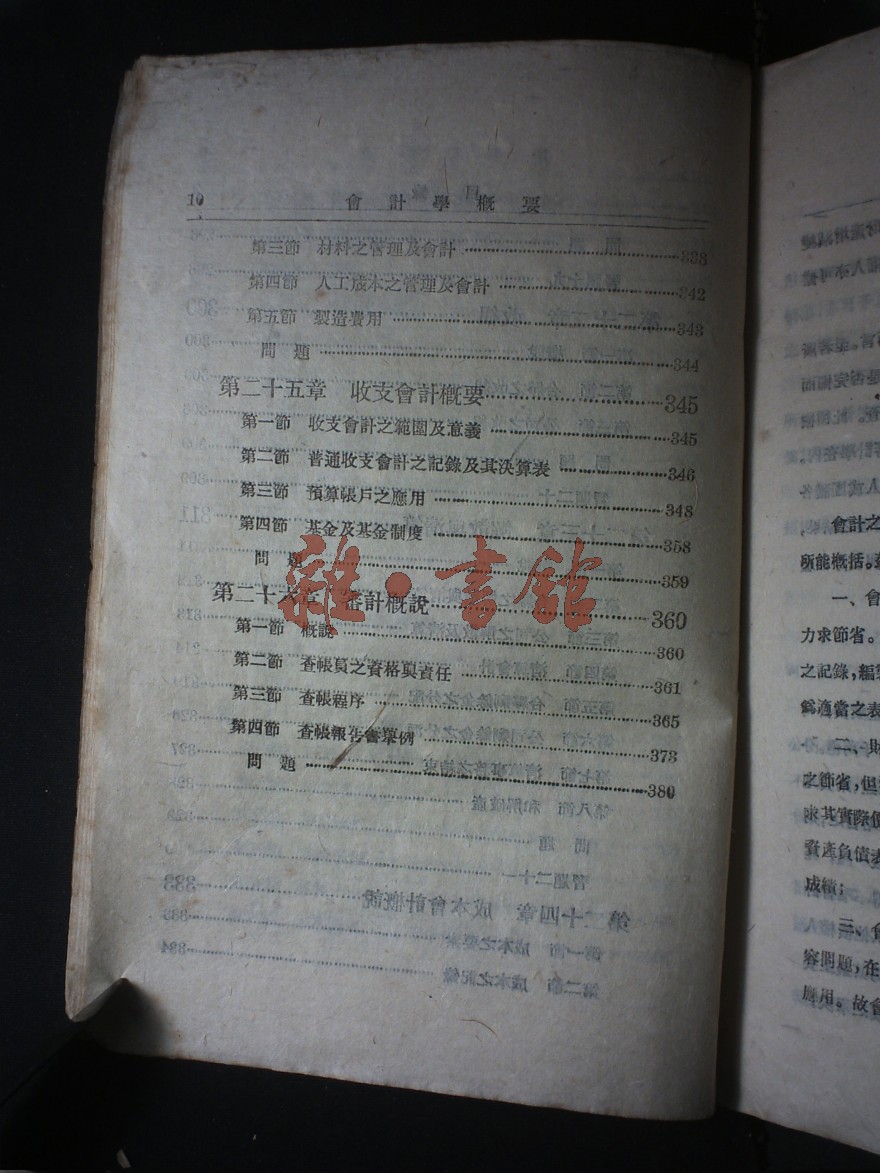 10 會計學概要
第三節 材料之管理及會計 338
第四節 人工成本之管理及會計 342
第五節 製造費用 343
問題 344
第二十五章 收支會計概要 345
第一節 收支會計之範圍及意義 345
第二節 普通收支會計之記錄及其決算表 346
第三節 預算帳戶之應用 348
第四節 基金及基金制度 358
問題 359
第二十六章 審計概說 360
第一節 概說 360
第二節 查帳員之資格與責任 361
第三節 查帳程序 365
第四節 查帳報告書舉例 373
問題 380
雜·書館
會計之
所能概括。
一、會
力求節省。
之記錄,編
爲適當之表
二、
之節省,但
求其實際價
資產負債表
成績;
三、
容問題,在
應用。故會